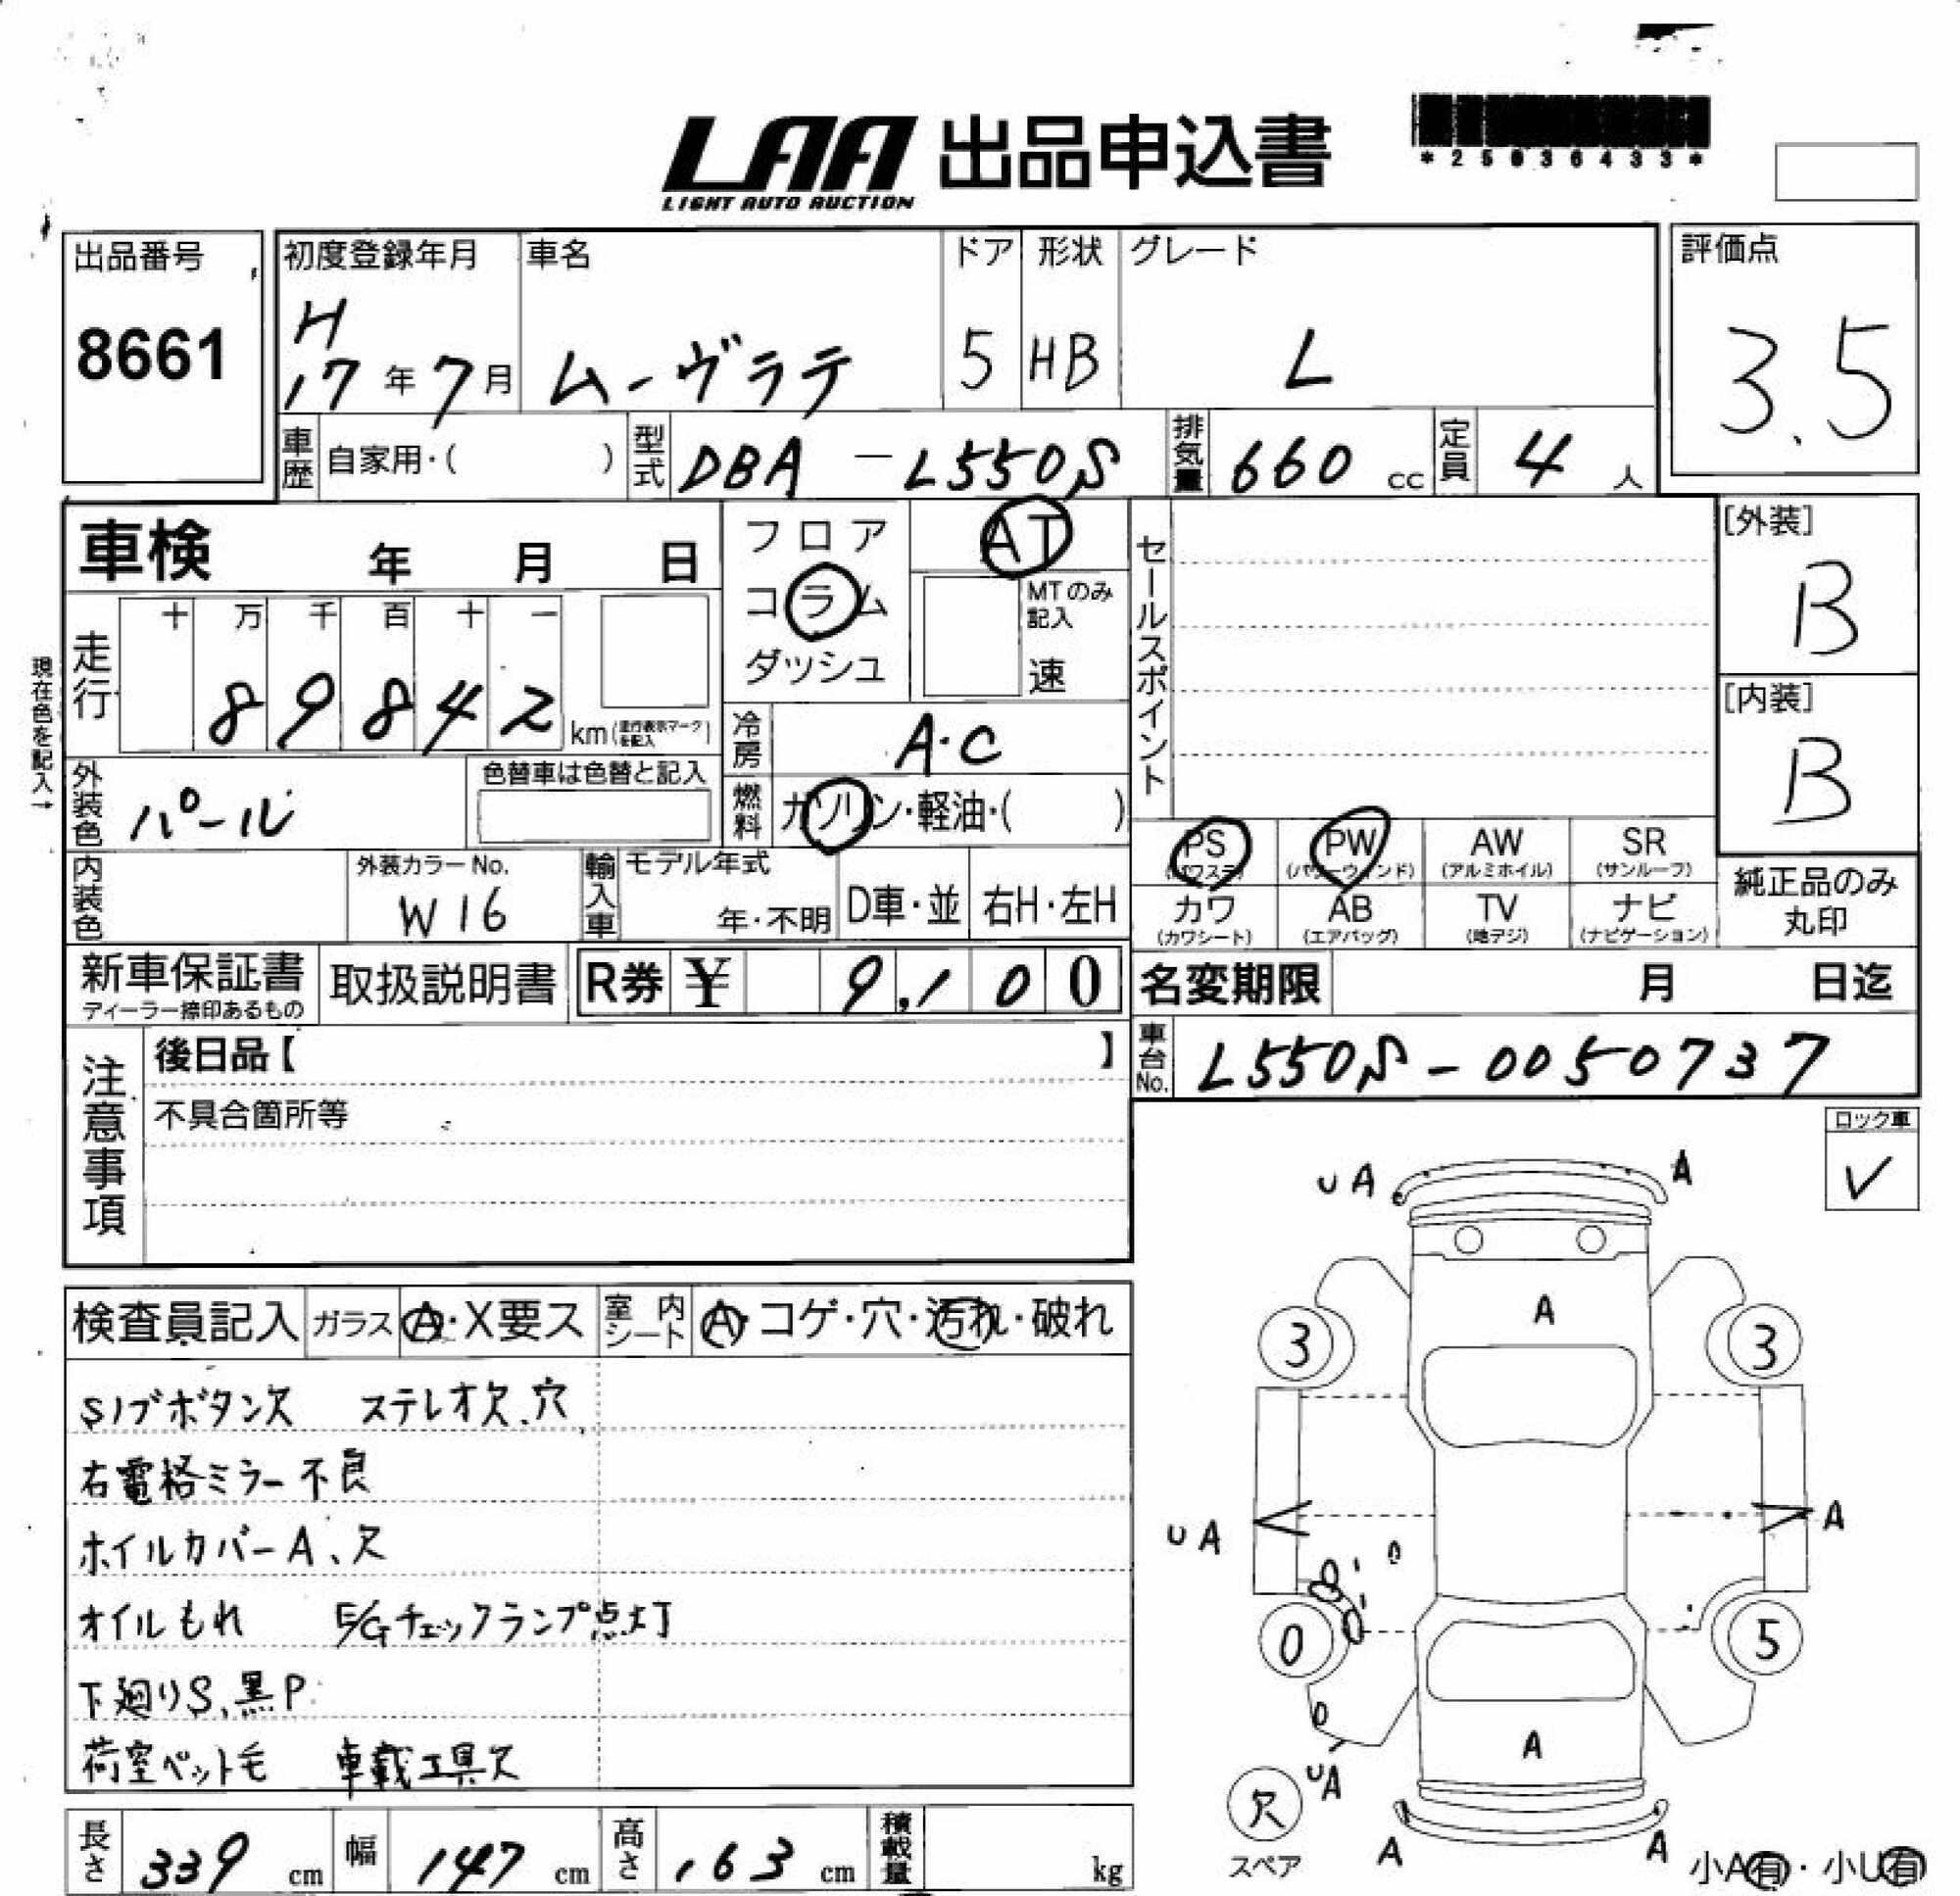 LAA 出品申込書
LIGHT AUTO AUCTION
*25036433*
出品番号
8661
初度登録年月
H
17年7月
車名
ムーヴラテ
ドア
5
形状
HB
グレード
L
評価点
3.5
車歴
自家用・( )
型式
DBA-L550S
排気量
660 cc
定員
4 人
車検 年 月 日
フロア
コラム
ダッシュ
AT
MTのみ記入
速
セールスポイント
[外装]
B
[内装]
B
現在色を記入→
走行
十 万 千 百 十 一
8 9 8 4 2 km (走行表示マークを記入)
冷房
A・C
外装色
パール
色替車は色替と記入
燃料
ガソリン・軽油・( )
PS (パワステ)
PW (パワーウインド)
AW (アルミホイル)
SR (サンルーフ)
カワ (カワシート)
AB (エアバッグ)
TV (地デジ)
ナビ (ナビゲーション)
純正品のみ丸印
内装色
外装カラーNo.
W16
輸入車
モデル年式
年・不明
D車・並
右H・左H
新車保証書
ディーラー捺印あるもの
取扱説明書
R券 ¥ 9,100
名変期限 月 日迄
車台No.
L550S-0050737
注意事項
後日品【 】
不具合箇所等
ロック車
✓
検査員記入
ガラス
A・X要ス
室内シート
A・コゲ・穴・汚れ・破れ
Sノブボタン欠 ステレオ欠、穴
右電格ミラー不良
ホイルカバーA、欠
オイルもれ E/Gチェックランプ点灯
下廻りS、黒P
荷室ペット毛 車載工具欠
UA
A
A
3
3
UA
A
0
5
A
UA
欠
スペア
A
A
小A有・小U有
長さ
339 cm
幅
147 cm
高さ
163 cm
積載量
kg